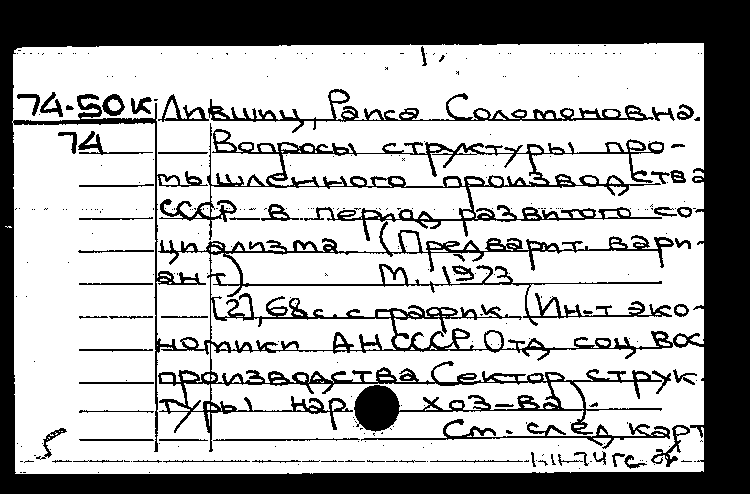 74-50к Лившиц, Раиса Соломоновна.
74
Вопросы структуры про-
мышленного производства
СССР в период развитого со-
циализма. (Предварит. вари-
ант). М., 1973
[2], 68 с. с график. (Ин-т эко-
номики АН СССР. Отд. соц. вос
производства. Сектор струк-
туры нар. хоз-ва).
См. след. карт